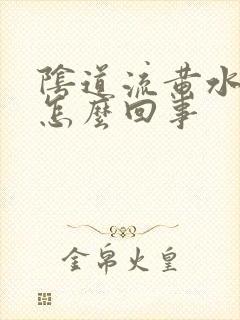 陰道流黄水
怎麼回事
金帛火皇